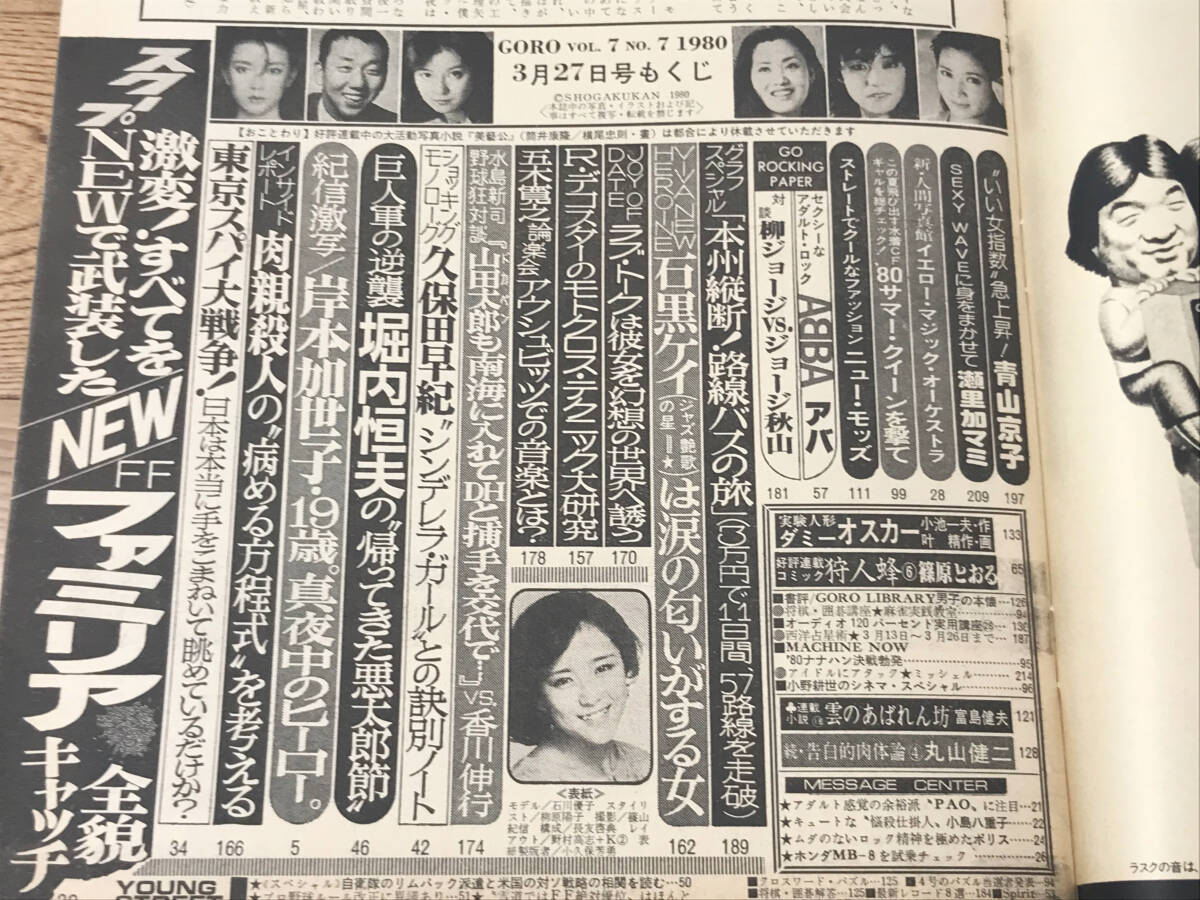 GORO VOL. 7 NO. 7 1980
3月27日号もくじ
©SHOGAKUKAN 1980
〈本誌中の写真・イラストおよび記
事はすべて複写・転載を禁じます〉
【おことわり】好評連載中の大活動写真小説『美藝公』(筒井康隆/横尾忠則・畫)は都合により休載させていただきます
“いい女指数”急上昇!青山京子
197
SEXY WAVEに身をまかせて 瀬里加マミ
209
新・人間写真館イエロー・マジック・オーケストラ
28
この夏飛び出す水着CFギャルを総チェック! '80サマー・クイーンを撃て
99
ストレートでクールなファッション ニュー・モッズ
111
GO ROCKING PAPER
セクシーなアダルト・ロック ABBA アバ
57
対談 柳ジョージVS.ジョージ秋山
181
グラフスペシャル「本州縦断!路線バスの旅」(3万円で11日間、57路線を走破)
189
VIVA NEW HEROINE 石黒ケイ(ジャズ艶歌の星II★)は涙の匂いがする女
162
JOY OF DATE ラブ・トークは彼女を幻想の世界へ誘う
170
R・デコスターのモトクロス・テクニック大研究
157
五木寛之論楽会 アウシュビッツでの音楽とは?
178
水島新司野球狂対談『山田太郎も南海に入れてDHと捕手を交代で…』VS.香川伸行
174
ショッキングモノローグ 久保田早紀“シンデレラ・ガール”との訣別ノート
42
巨人軍の逆襲 堀内恒夫の“帰ってきた悪太郎節”
46
紀信激写/岸本加世子・19歳。真夜中のヒーロー。
5
インサイドレポート 肉親殺人の“病める方程式”を考える
166
東京スパイ大戦争!日本は本当に手をこまねいて眺めているだけか?
34
激変!すべてを
スクープ NEWで武装した NEW FF ファミリア 全貌キャッチ
実験人形 ダミーオスカー 小池一夫・作 叶 精作・画 133
好評連載コミック 狩人蜂⑥ 篠原とおる 65
■書評/GORO LIBRARY男子の本懐…126
●将棋・囲碁講座★麻雀実践教室…94
■オーディオ120パーセント実用講座㉙…130
●西洋占星術★3月13日〜3月26日まで…187
■MACHINE NOW
'80ナナハン決戦勃発…95
●アイドルにアタック★ミッシェル…214
■小野耕世のシネマ・スペシャル…96
♣連載小説⑱ 雲のあばれん坊 富島健夫 121
続・告白的肉体論④ 丸山健二 128
MESSAGE CENTER
★アダルト感覚の余裕派“PAO”に注目…21
★キュートな“悩殺仕掛人”小島八重子…22
★ムダのないロック精神を極めたポリス…24
★ホンダMB-8を試乗チェック…26
〈表紙〉
モデル/石川優子 スタイリ
スト/柳原陽子 撮影/篠山
紀信 構成/長友啓典 レイ
アウト/野村高志+K② 表
紙製版者/小久保芳勇
YOUNG STREET
★〈スペシャル〉自衛隊のリムパック派遣と米国の対ソ戦略の相関を読む…50
■クロスワード・パズル…125
■4号のパズル当選者発表…94
■将棋・囲碁解答…125
■最新レコード8選…184
■Spirit…53
ラスクの音は、